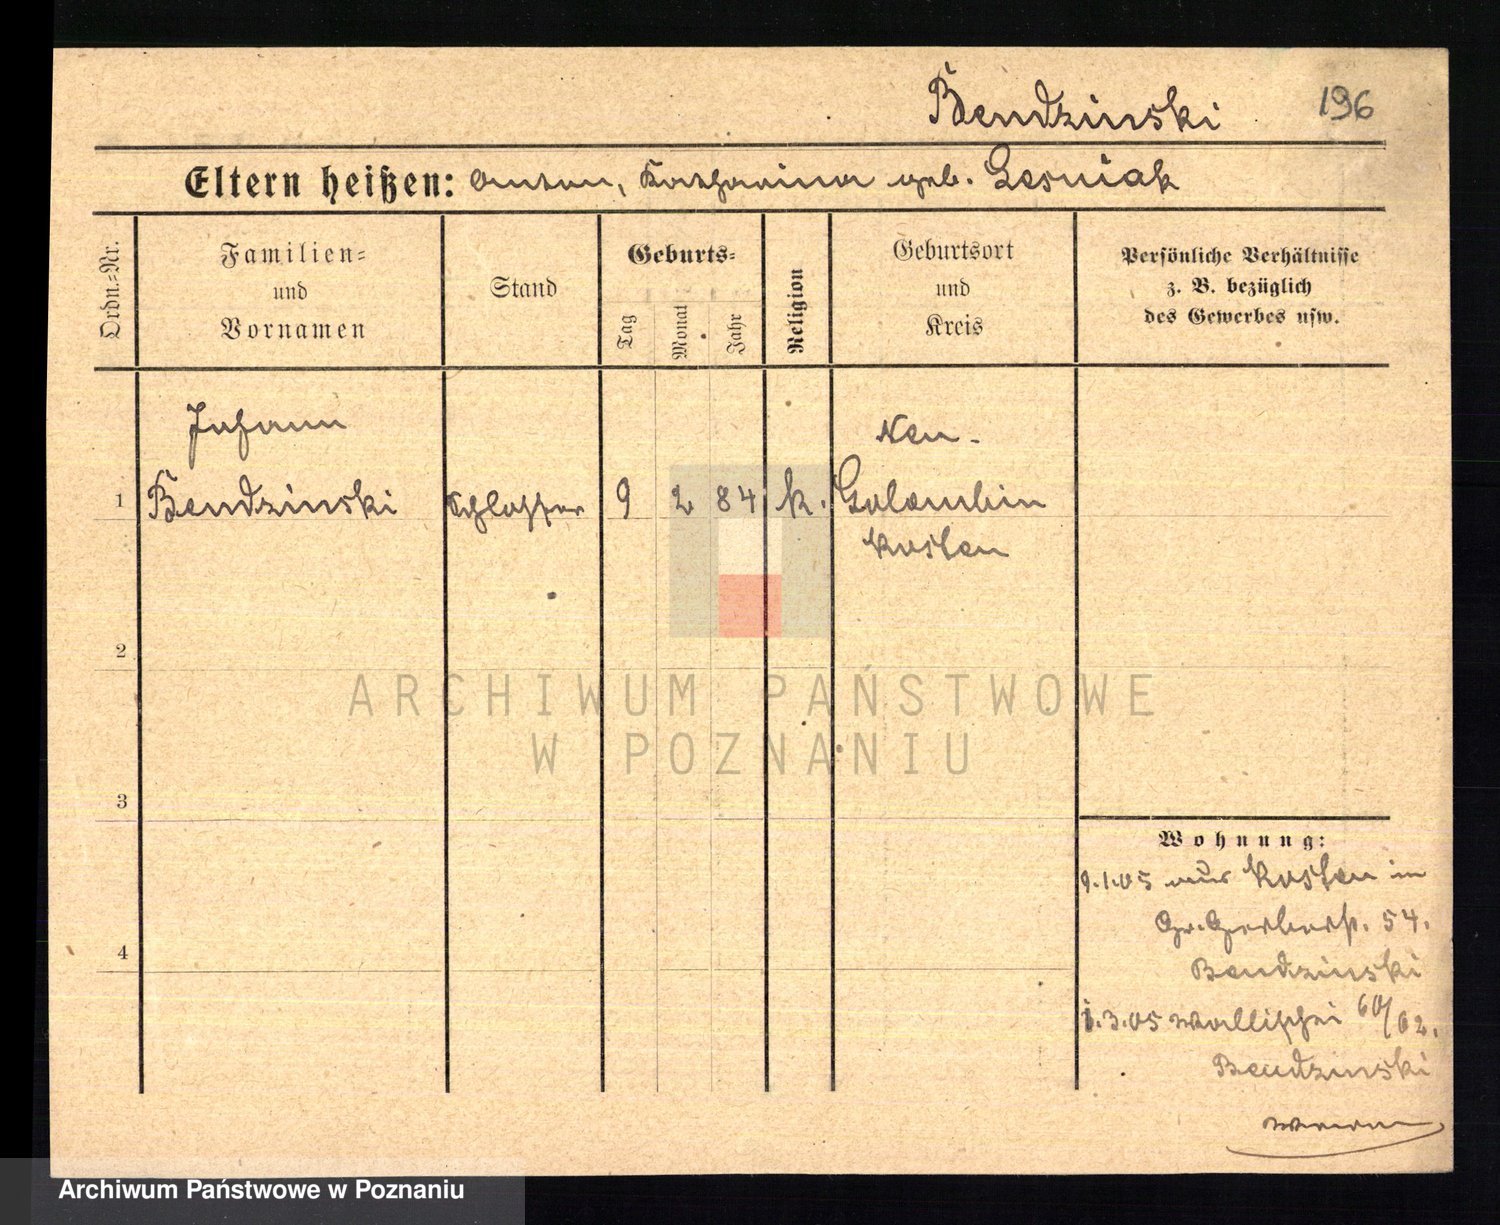 Bendzinski 196
Eltern heißen: Anton, Katharina geb. Lesniak
Ordn.-Nr.
Familien-
und
Vornamen
Stand
Geburts-
Tag
Monat
Jahr
Religion
Geburtsort
und
Kreis
Persönliche Verhältnisse
z. B. bezüglich
des Gewerbes usw.
Johann
Neu-
1 Bendzinski Schlosser 9 2 84 k. Golembin
Kosten
2
ARCHIWUM PAŃSTWOWE
W POZNANIU
3
Wohnung:
9.1.05 aus Kosten in
Gr. Gerberst. 54.
4
Bendzinski
1.3.05 Wallischei 60/62.
Bendzinski
Archiwum Państwowe w Poznaniu